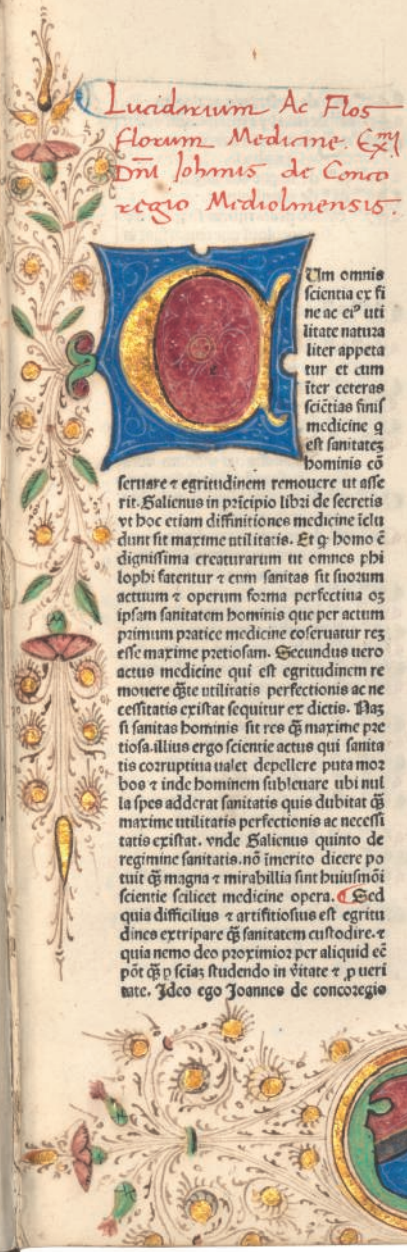 Lucidarium Ac Flos
florum Medicine. Exmj
Dnī Iohānis de Conco
regio Mediolanensis.
CUm omnis
scientia ex fi
ne ac ei⁹ uti
litate natura
liter appeta
tur et cum
īter ceteras
sciētias finis
medicine q
est sanitatez
hominis cō
seruare ⁊ egritudinem remouere ut asse
rit. Galienus in prīcipio libri de secretis
vt hoc etiam diffinitiones medicine īclu
dunt sit maxime utilitatis. Et q̄ homo ē
dignissima creaturarum ut omnes phi
lophi fatentur ⁊ cum sanitas sit suorum
actuum ⁊ operum forma perfectiua oꝫ
ipsam sanitatem hominis que per actum
primum pratice medicine coseruatur reꝫ
esse maxime pretiosam. Secundus uero
actus medicine qui est egritudinem re
mouere q̄te utilitatis perfectionis ac ne
cessitatis existat sequitur ex dictis. Naꝫ
si sanitas hominis sit res q̄ maxime pre
tiosa.illius ergo scientie actus qui sanita
tis corruptiua ualet depellere puta mor
bos ⁊ inde hominem subleuare ubi nul
la spes adderat sanitatis quis dubitat q̄
maxime utilitatis perfectionis ac necessi
tatis existat. vnde Galienus quinto de
regimine sanitatis.nō īmerito dicere po
tuit q̄ magna ⁊ mirabillia sint huiusmōi
scientie scilicet medicine opera. ¶ Sed
quia difficilius ⁊ artifitiosius est egritu
dines extripare q̄ sanitatem custodire.⁊
quia nemo deo proximior per aliquid eē
pōt q̄ p sciaꝫ studendo in v̄itate ⁊ ꝓ ueri
tate. Ideo ego Joannes de concoregio